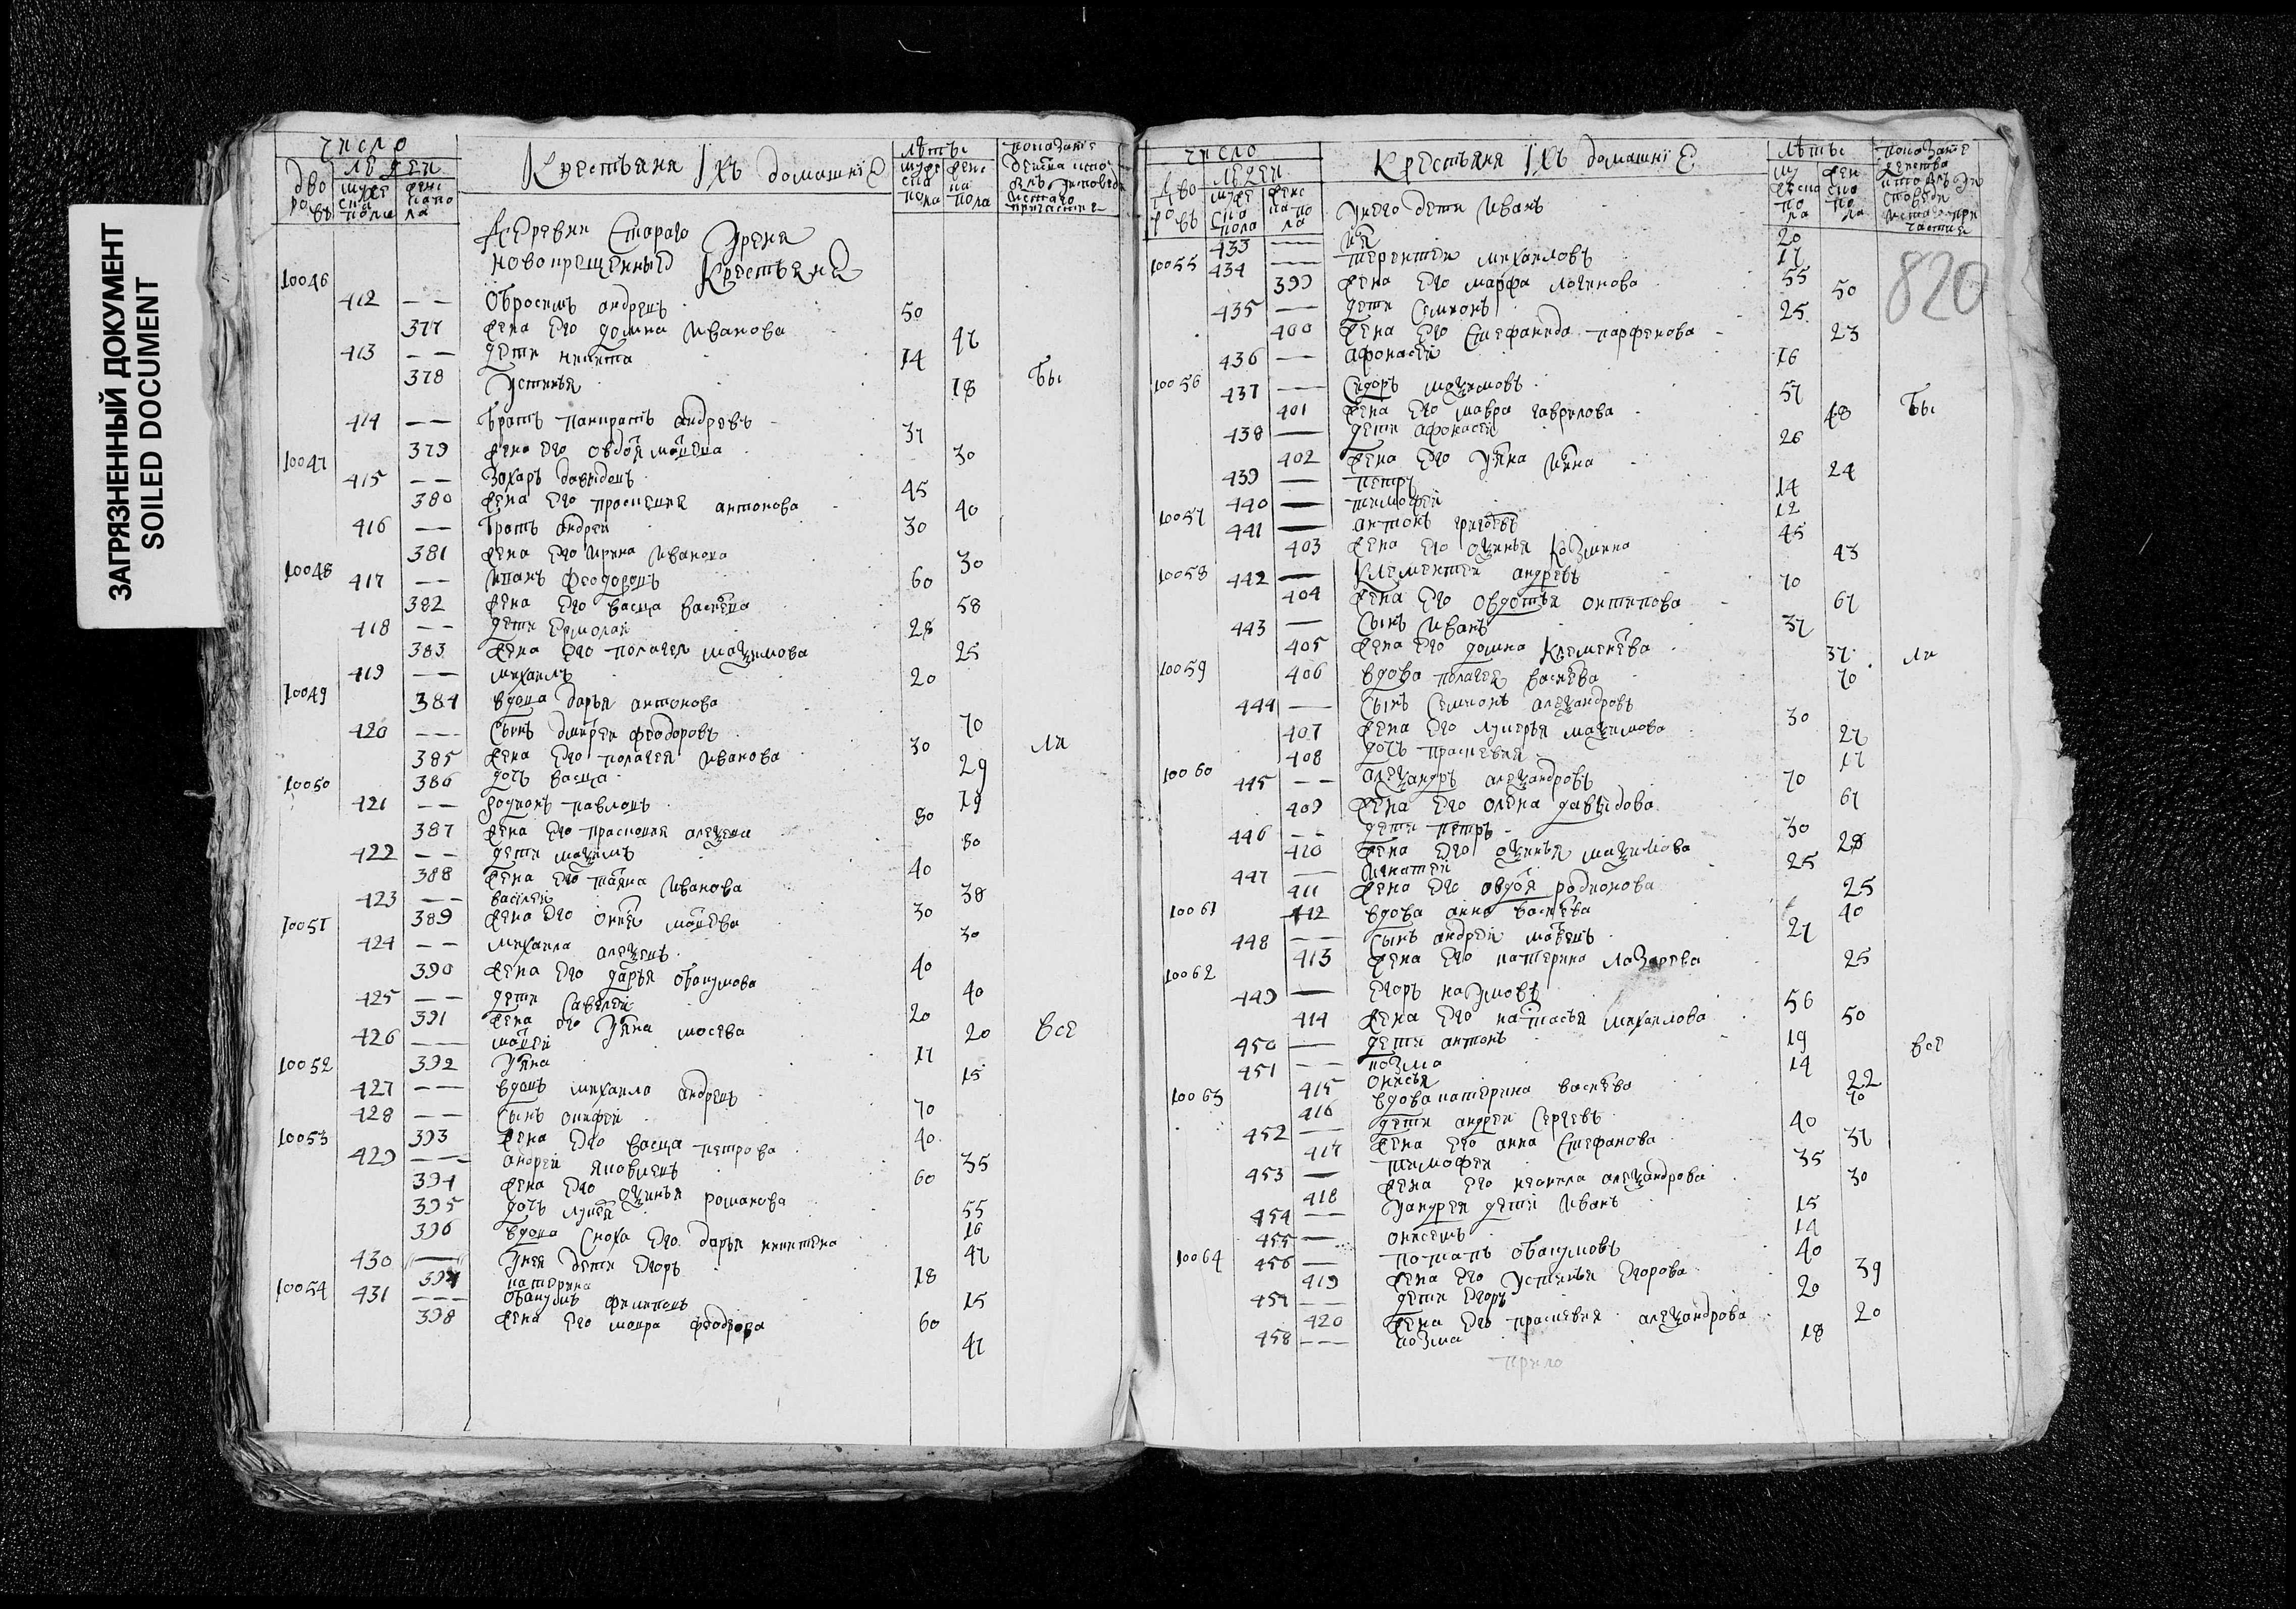 ЗАГРЯЗНЕННЫЙ ДОКУМЕНТ
SOILED DOCUMENT
число
людей
дворовъ
мужеска пола
женска пола
Крестьяня Ихъ домашнiе
лѣты
мужеска пола
женска пола
Деревни Стараго Урена
новокрещенные Крестьяня
10046
412 — — Обросимъ андреевъ 50
377 жена Его домна Иванова 47
413 — — дети никита 14
378 Устинья 18 бы
414 — — братъ панкратъ андревъ 37
379 жена Его овдотя 30
10047
415 — — Захаръ давыдовъ 45
380 жена Его прасковья антонова 40
416 — — братъ андреи 30
381 жена Его Ирина Иванова 30
10048 417 — — феодоровъ 60
382 жена Его васса 58
418 — — дети Ермолаи 28
383 жена Его полагея маѯимова 25
419 — — михаилъ 20
10049 384 вдова дарья антонова 70
420 — — сынъ дмитреи феодоровъ 30
385 жена Его полагея Иванова 29 ли
386 дочь васса 19
10050
421 — — родионъ павловъ 80
387 жена Его прасковья 80
422 — — дети маѯимъ 40
388 жена Его татяна Иванова 38
423 — — василеи 30
389 жена Его 30
10051
424 — — михаила алеѯеевъ 40
390 жена Его дарья обакумова 40
425 — — дети савелеи 20
391 жена Его Уляна мосева 20 все
426 — — матвеи 17
392 Уляна 15
10052
427 — — вдовъ михаило андреевъ 70
428 — — сынъ 40
393 жена Его васса петрова 35
10053
429 — — андреи яковлевъ 60
394 жена Его оѯинья романова 55
395 дочь 16
396 вдова сноха Его дарья никитина 47
430 — — Унея дети Егоръ 18
397 катерина 15
10054 431 — — обакумъ филиповъ 60
398 жена Его мавра феодорова 47
число
людей
дворовъ
мужеска пола
женска пола
Крестьяня Ихъ домашнiЕ
лѣты
820
Унего дети Иванъ
433 — 20
10055 434 — терентеи михаиловъ 17
399 жена Его марфа логинова 55 50
435 — дети семионъ 25
400 жена Его стефанида парфенова 23
436 — афонасеи 16
10056 437 — сидоръ маѯимовъ 57
401 жена Его мавра гаврилова 48 бы
438 — дети афонасеи 26
402 жена Его Уляна 24
439 — петръ 14
440 — тимофеи 12
10057 441 — антонъ григоревъ 45
403 жена Его оѯинья Козмина 43
10058 442 — Клементеи андревъ 70
404 жена Его овдотья онтипова 67
443 — сынъ Иванъ 37
405 жена Его домна Клементева 37 ли
10059 406 вдова полагея василева 70
444 — сынъ семионъ алеѯандровъ 30
407 жена Его лукерья маѯимова 27
408 дочь прасковия 17
10060 445 — — алеѯандръ алеѯандровъ 70
409 жена Его олена давыдова 67
446 — — дети петръ 30
410 жена Его оѯинья маѯимова 28
447 — Игнатеи 25
411 жена Его овдотя родионова 25
10061 412 вдова анна василева 40
448 — — сынъ андреи матвеевъ 27
413 жена Его катерина лазарева 25
10062
449 — Егоръ наумовъ 56
414 жена Его настасья михаилова 50
450 — дети антонъ 19
451 — козма 14 все
415 онисья 22
10063 416 вдова катерина василева 70
452 — дети андреи сергеевъ 40
417 жена Его анна стефанова 37
453 — тимофеи 35
418 жена Его неонила алеѯандрова 30
454 — Уандрея дети Иванъ 15
455 — онисемъ 14
10064 456 — потапъ обакумовъ 40
419 жена Его Устинья Егорова 39
457 — дети Егоръ 20
420 жена Его прасковия алеѯандрова 20
458 — — козма 18